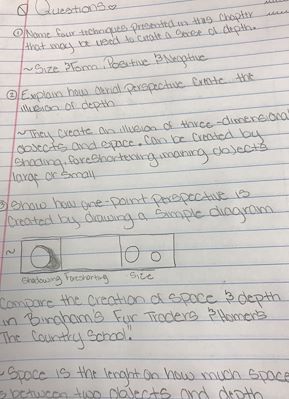 Questions
① Name four techniques presented in this chapter
that may be used to create a sense of depth.
~ Size & Form, Positive & Negative
② Explain how aerial perspective create the
illusion of depth
~ They create an illusion of three-dimensional
objects and space. Can be created by
shading, foreshortening, making objects
large or small
③ Show how one-point perspective is
created by drawing a simple diagram
~
Shadowing Foreshorting Size
Compare the creation of space & depth
in Bingham's Fur Traders & Homer's
The Country School."
~ Space is the lenght on how much space
is between two objects and depth